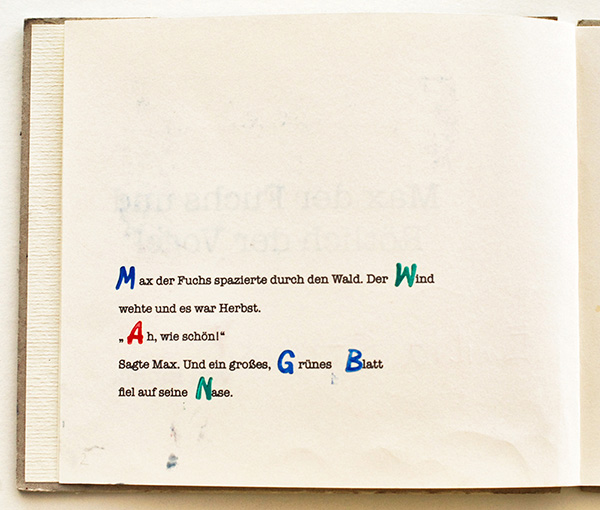 Max der Fuchs spazierte durch den Wald. Der Wind
wehte und es war Herbst.
„Ah, wie schön!“
Sagte Max. Und ein großes, Grünes Blatt
fiel auf seine Nase.